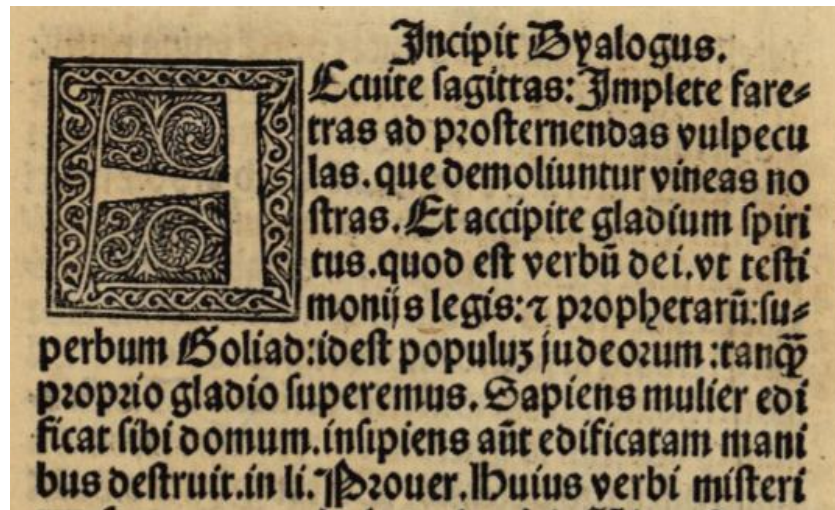 Incipit Dyalogus.
AEcuite sagittas: Implete fare⸗
tras ad prosternendas vulpecu
las. que demoliuntur vineas no
stras. Et accipite gladium spiri
tus. quod est verbū dei. vt testi
monijs legis: ⁊ prophetarū: su⸗
perbum Goliad: idest populuʒ judeorum: tanq̄ꝫ
proprio gladio superemus. Sapiens mulier edi
ficat sibi domum. insipiens aūt edificatam mani
bus destruit. in li. Prouer. Huius verbi misteri